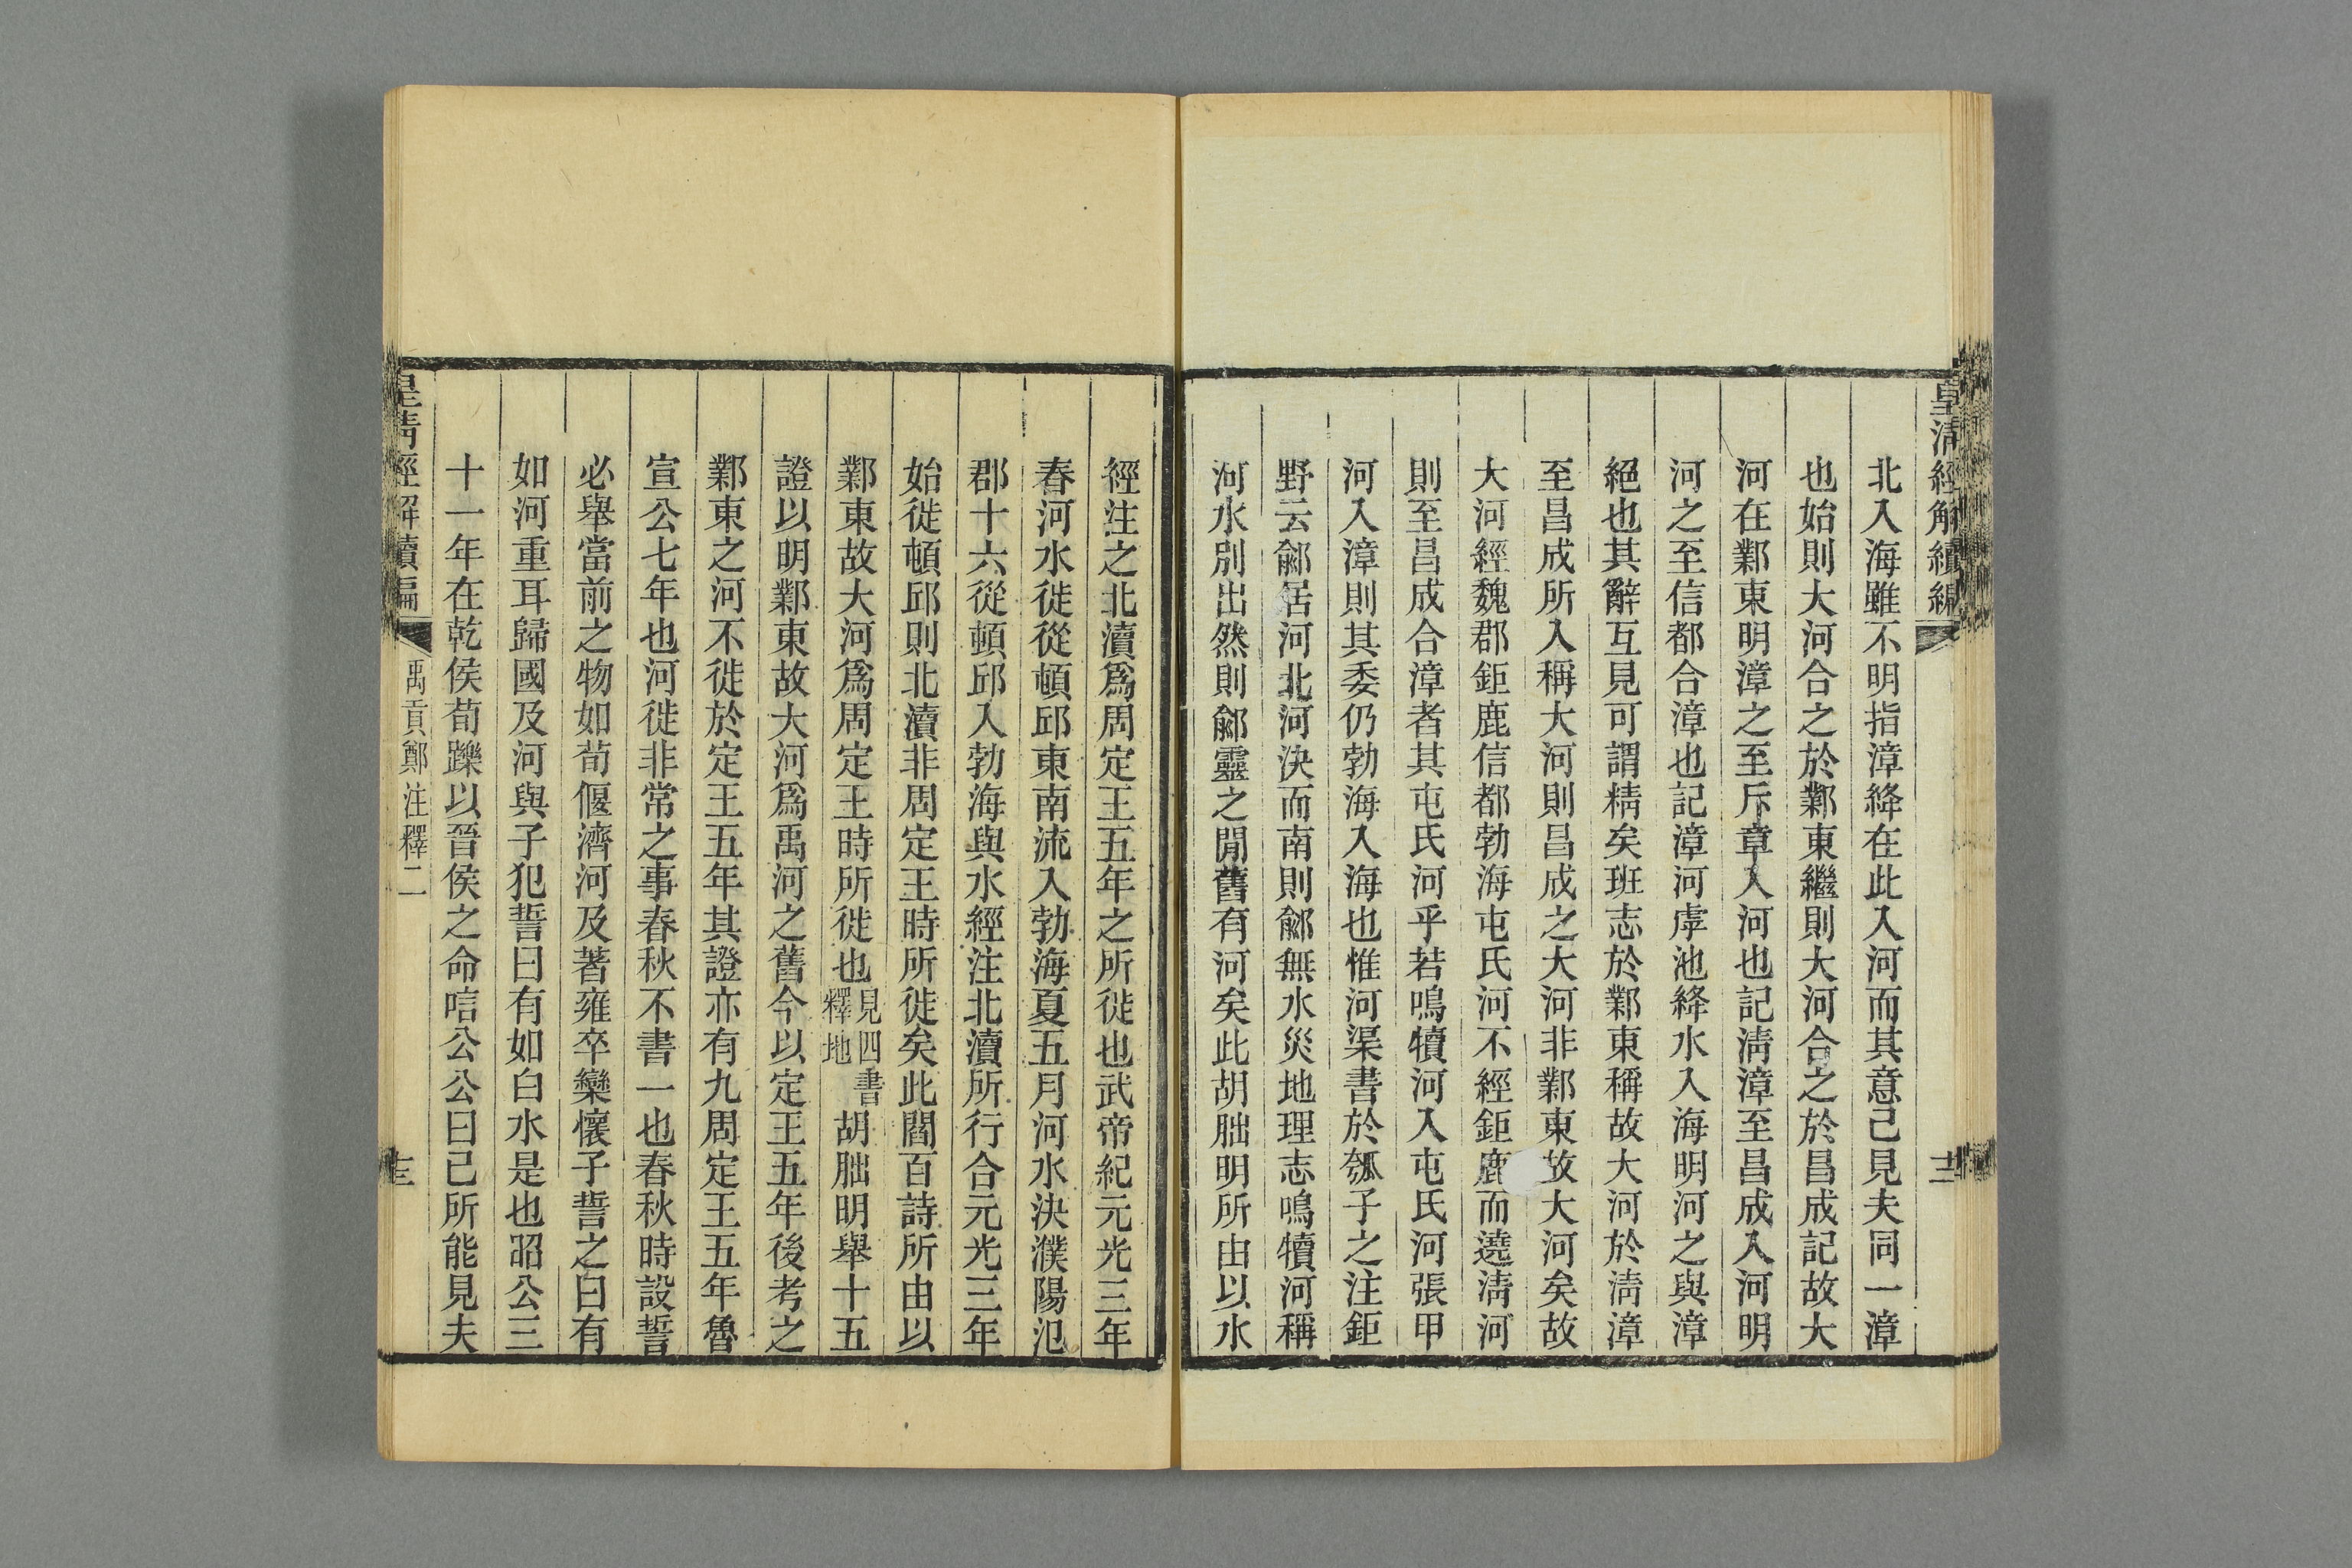 皇清經解續編
十二
北入海雖不明指漳絳在此入河而其意己見夫同一漳
也始則大河合之於鄴東繼則大河合之於昌成記故大
河在鄴東明漳之至斥章入河也記淸漳至昌成入河明
河之至信都合漳也記漳河虖池絳水入海明河之與漳
絕也其辭互見可謂精矣班志於鄴東稱故大河於淸漳
至昌成所入稱大河則昌成之大河非鄴東故大河矣故
大河經魏郡鉅鹿信都勃海屯氏河不經鉅鹿而遶淸河
則至昌成合漳者其屯氏河乎若鳴犢河入屯氏河張甲
河入漳則其委仍勃海入海也惟河渠書於瓠子之注鉅
野云鄃居河北河決而南則鄃無水災地理志鳴犢河稱
河水別出然則鄃靈之閒舊有河矣此胡朏明所由以水
經注之北瀆爲周定王五年之所徙也武帝紀元光三年
春河水徙從頓邱東南流入勃海夏五月河水決濮陽氾
郡十六從頓邱入勃海與水經注北瀆所行合元光三年
始徙頓邱則北瀆非周定王時所徙矣此閻百詩所由以
鄴東故大河爲周定王時所徙也見四書釋地胡朏明舉十五
證以明鄴東故大河爲禹河之舊今以定王五年後考之
鄴東之河不徙於定王五年其證亦有九周定王五年魯
宣公七年也河徙非常之事春秋不書一也春秋時設誓
必舉當前之物如荀偃濟河及著雍卒欒懷子誓之曰有
如河重耳歸國及河與子犯誓曰有如白水是也昭公三
十一年在乾侯荀躒以晉侯之命唁公公曰己所能見夫
皇清經解續編
禹貢鄭注釋二
十三